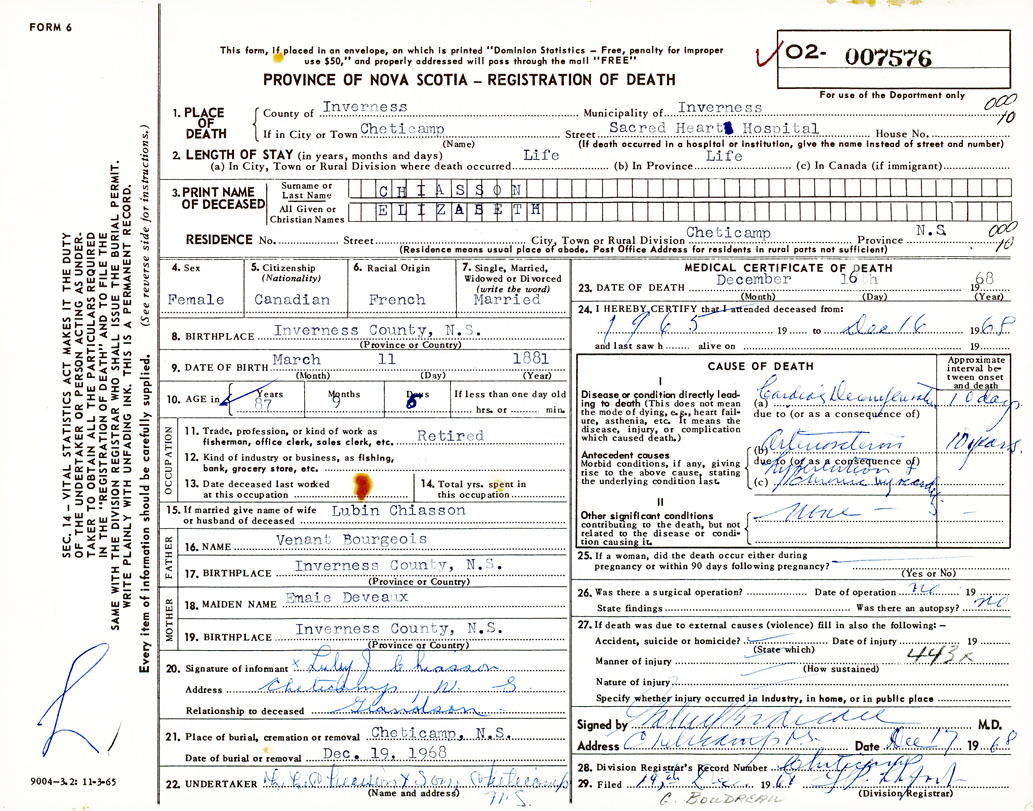 FORM 6
This form, if placed in an envelope, on which is printed "Dominion Statistics – Free, penalty for improper
use $50," and properly addressed will pass through the mail "FREE"
PROVINCE OF NOVA SCOTIA – REGISTRATION OF DEATH
02- 007576
For use of the Department only
1. PLACE OF DEATH
County of Inverness Municipality of Inverness
000 10
If in City or Town Cheticamp Street Sacred Heart Hospital House No.
(Name) (If death occurred in a hospital or institution, give the name instead of street and number)
2. LENGTH OF STAY (in years, months and days) Life Life
(a) In City, Town or Rural Division where death occurred (b) In Province (c) In Canada (if immigrant)
3. PRINT NAME OF DECEASED
Surname or Last Name CHIASSON
All Given or Christian Names ELIZABETH
RESIDENCE No. Street City, Town or Rural Division Cheticamp Province N.S
000 10
(Residence means usual place of abode. Post Office Address for residents in rural parts not sufficient)
SEC. 14 – VITAL STATISTICS ACT MAKES IT THE DUTY
OF THE UNDERTAKER OR PERSON ACTING AS UNDER-
TAKER TO OBTAIN ALL THE PARTICULARS REQUIRED
IN THE "REGISTRATION OF DEATH" AND TO FILE THE
SAME WITH THE DIVISION REGISTRAR WHO SHALL ISSUE THE BURIAL PERMIT.
WRITE PLAINLY WITH UNFADING INK. THIS IS A PERMANENT RECORD.
Every item of information should be carefully supplied. (See reverse side for instructions.)
4. Sex
Female
5. Citizenship
(Nationality)
Canadian
6. Racial Origin
French
7. Single, Married,
Widowed or Divorced
(write the word)
Married
8. BIRTHPLACE Inverness County, N.S.
(Province or Country)
9. DATE OF BIRTH March 11 1881
(Month) (Day) (Year)
10. AGE in Years Months Days If less than one day old
87 9 hrs. or min.
OCCUPATION
11. Trade, profession, or kind of work as
fisherman, office clerk, sales clerk, etc. Retired
12. Kind of industry or business, as fishing,
bank, grocery store, etc.
13. Date deceased last worked
at this occupation
14. Total yrs. spent in
this occupation
15. If married give name of wife
or husband of deceased Lubin Chiasson
FATHER
16. NAME Venant Bourgeois
17. BIRTHPLACE Inverness County, N.S.
(Province or Country)
MOTHER
18. MAIDEN NAME Emaie Deveaux
19. BIRTHPLACE Inverness County, N.S.
(Province or Country)
20. Signature of informant x J Chiasson
Address Cheticamp, N. S
Relationship to deceased Grandson
21. Place of burial, cremation or removal Cheticamp, N.S.
Date of burial or removal Dec. 19, 1968
22. UNDERTAKER Chiasson & Son, Cheticamp
(Name and address) N.S.
9004–3.2: 11-3-65
MEDICAL CERTIFICATE OF DEATH
23. DATE OF DEATH December 16th 1968
(Month) (Day) (Year)
24. I HEREBY CERTIFY that I attended deceased from:
1965 19 to Dec 16 1968
and last saw h alive on 19
CAUSE OF DEATH
Approximate
interval be-
tween onset
and death
I
Disease or condition directly lead-
ing to death (This does not mean
the mode of dying, e.g., heart fail-
ure, asthenia, etc. It means the
disease, injury, or complication
which caused death.)
(a) Cardiac 10 days
due to (or as a consequence of)
Antecedent causes
Morbid conditions, if any, giving
rise to the above cause, stating
the underlying condition last.
(b) 10 years
due to (or as a consequence of)
Hypertension +
(c) chronic
II
Other significant conditions
contributing to the death, but not
related to the disease or condi-
tion causing it.
none –
25. If a woman, did the death occur either during
pregnancy or within 90 days following pregnancy?
(Yes or No)
26. Was there a surgical operation? Date of operation no 19
State findings Was there an autopsy? no
27. If death was due to external causes (violence) fill in also the following: –
Accident, suicide or homicide? Date of injury 19
(State which)
443x
Manner of injury
(How sustained)
Nature of injury
Specify whether injury occurred in industry, in home, or in public place
Signed by M.D.
Address Cheticamp N.S. Date Dec 17 1968
28. Division Registrar's Record Number Cheticamp
29. Filed 19th Dec 1968
(Division Registrar)
G. BOUDREAU